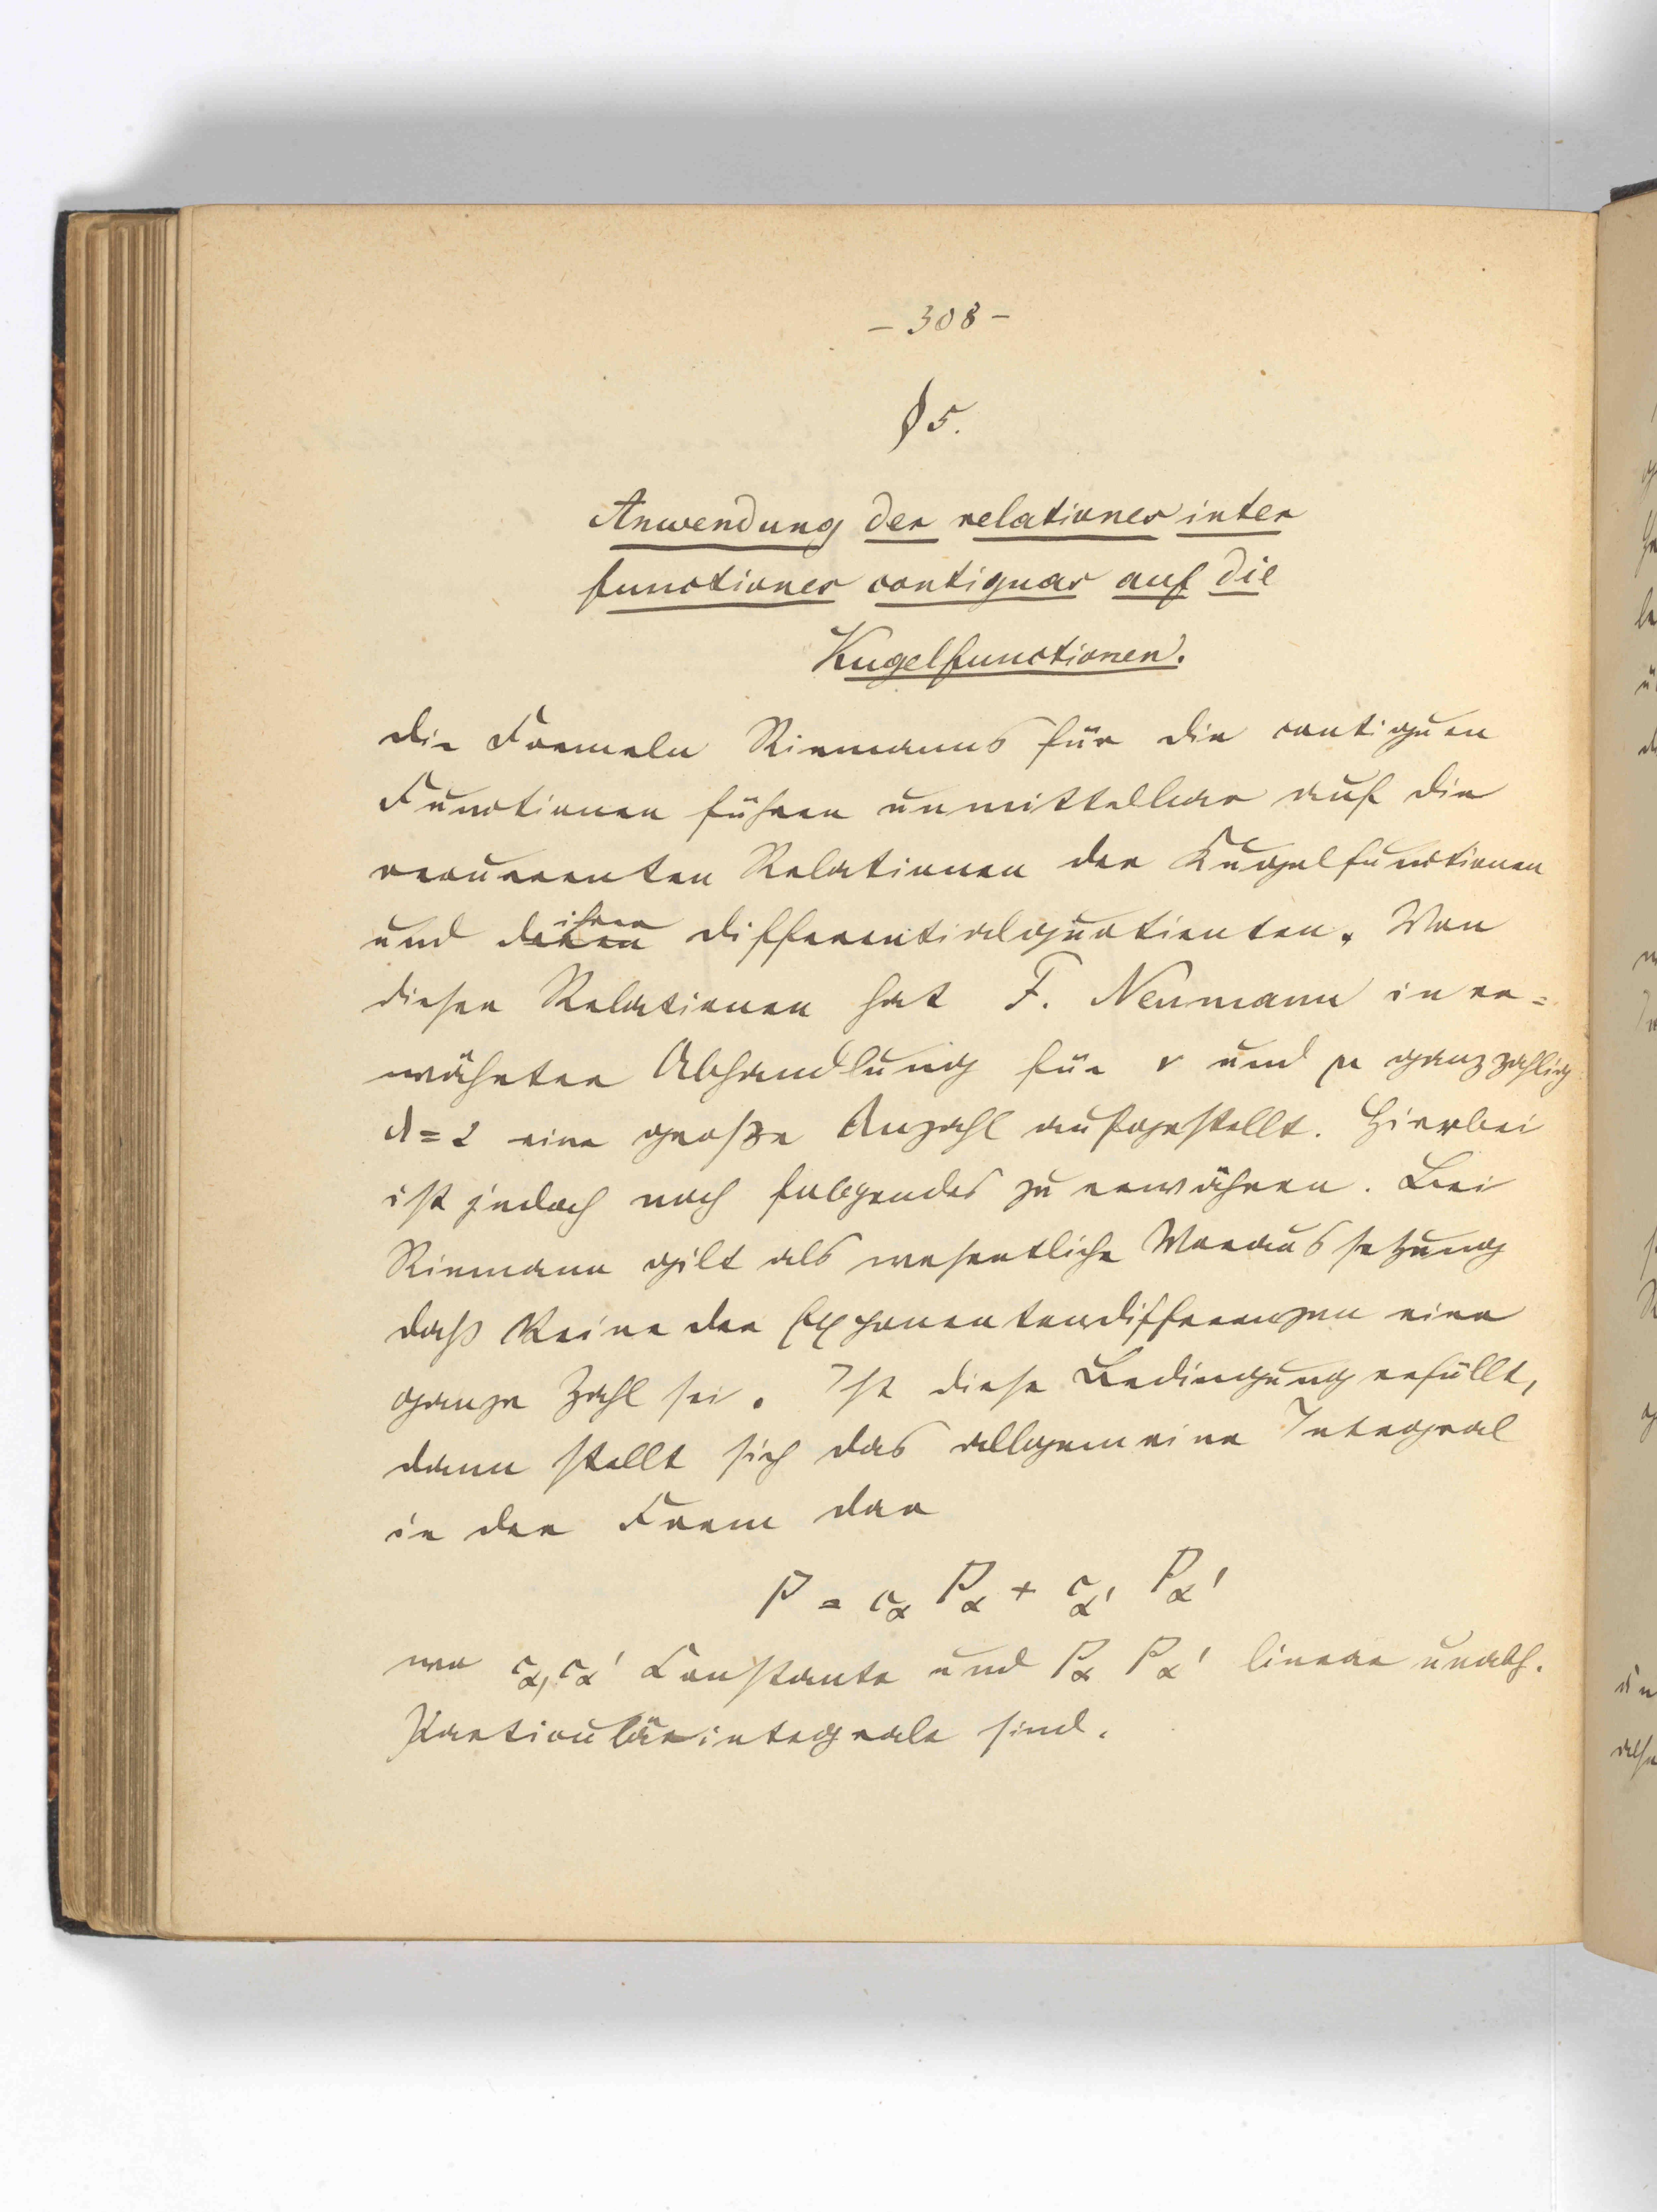 - 308 -
§ 5.
Anwendung der relationes inter
functiones contiguas auf die
Kugelfunctionen.
Die Formeln Riemanns für die contiguen
Functionen führen unmittelbar auf die
recurrenten Relationen der Kugelfunctionen
und deren ihrer Differentialquotienten. Von
diesen Relationen hat F. Neumann in er=
wähnter Abhandlung für ν und μ ganzzahlig
λ = 2 eine große Anzahl aufgestellt. Hierbei
ist jedoch noch folgendes zu erwähnen. Bei
Riemann gilt als wesentliche Voraussetzung
daß keine der Exponentendifferenzen eine
ganze Zahl sei. Ist diese Bedingung erfüllt,
dann stellt sich das allgemeine Integral
in der Form dar
P = c_α P_α + c_α' P_α'
wo c_α, c_α' Constante und P_α P_α' linear unabh.
Particulärintegrale sind.